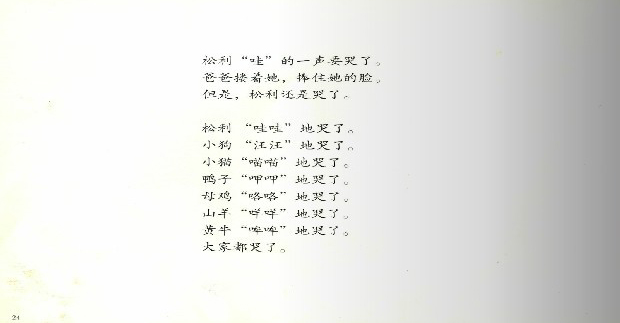 松利“哇”的一声要哭了。
爸爸搂着她，捧住她的脸。
但是，松利还是哭了。
松利“哇哇”地哭了。
小狗“汪汪”地哭了。
小猫“喵喵”地哭了。
鸭子“呷呷”地哭了。
母鸡“咯咯”地哭了。
山羊“咩咩”地哭了。
黄牛“哞哞”地哭了。
大家都哭了。
24